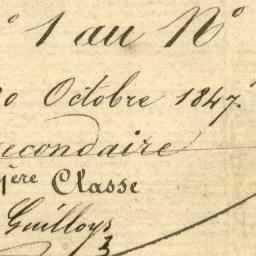 ° 1 au N°
20 Octobre 1847.
econdaire
1ère Classe
Guilloys